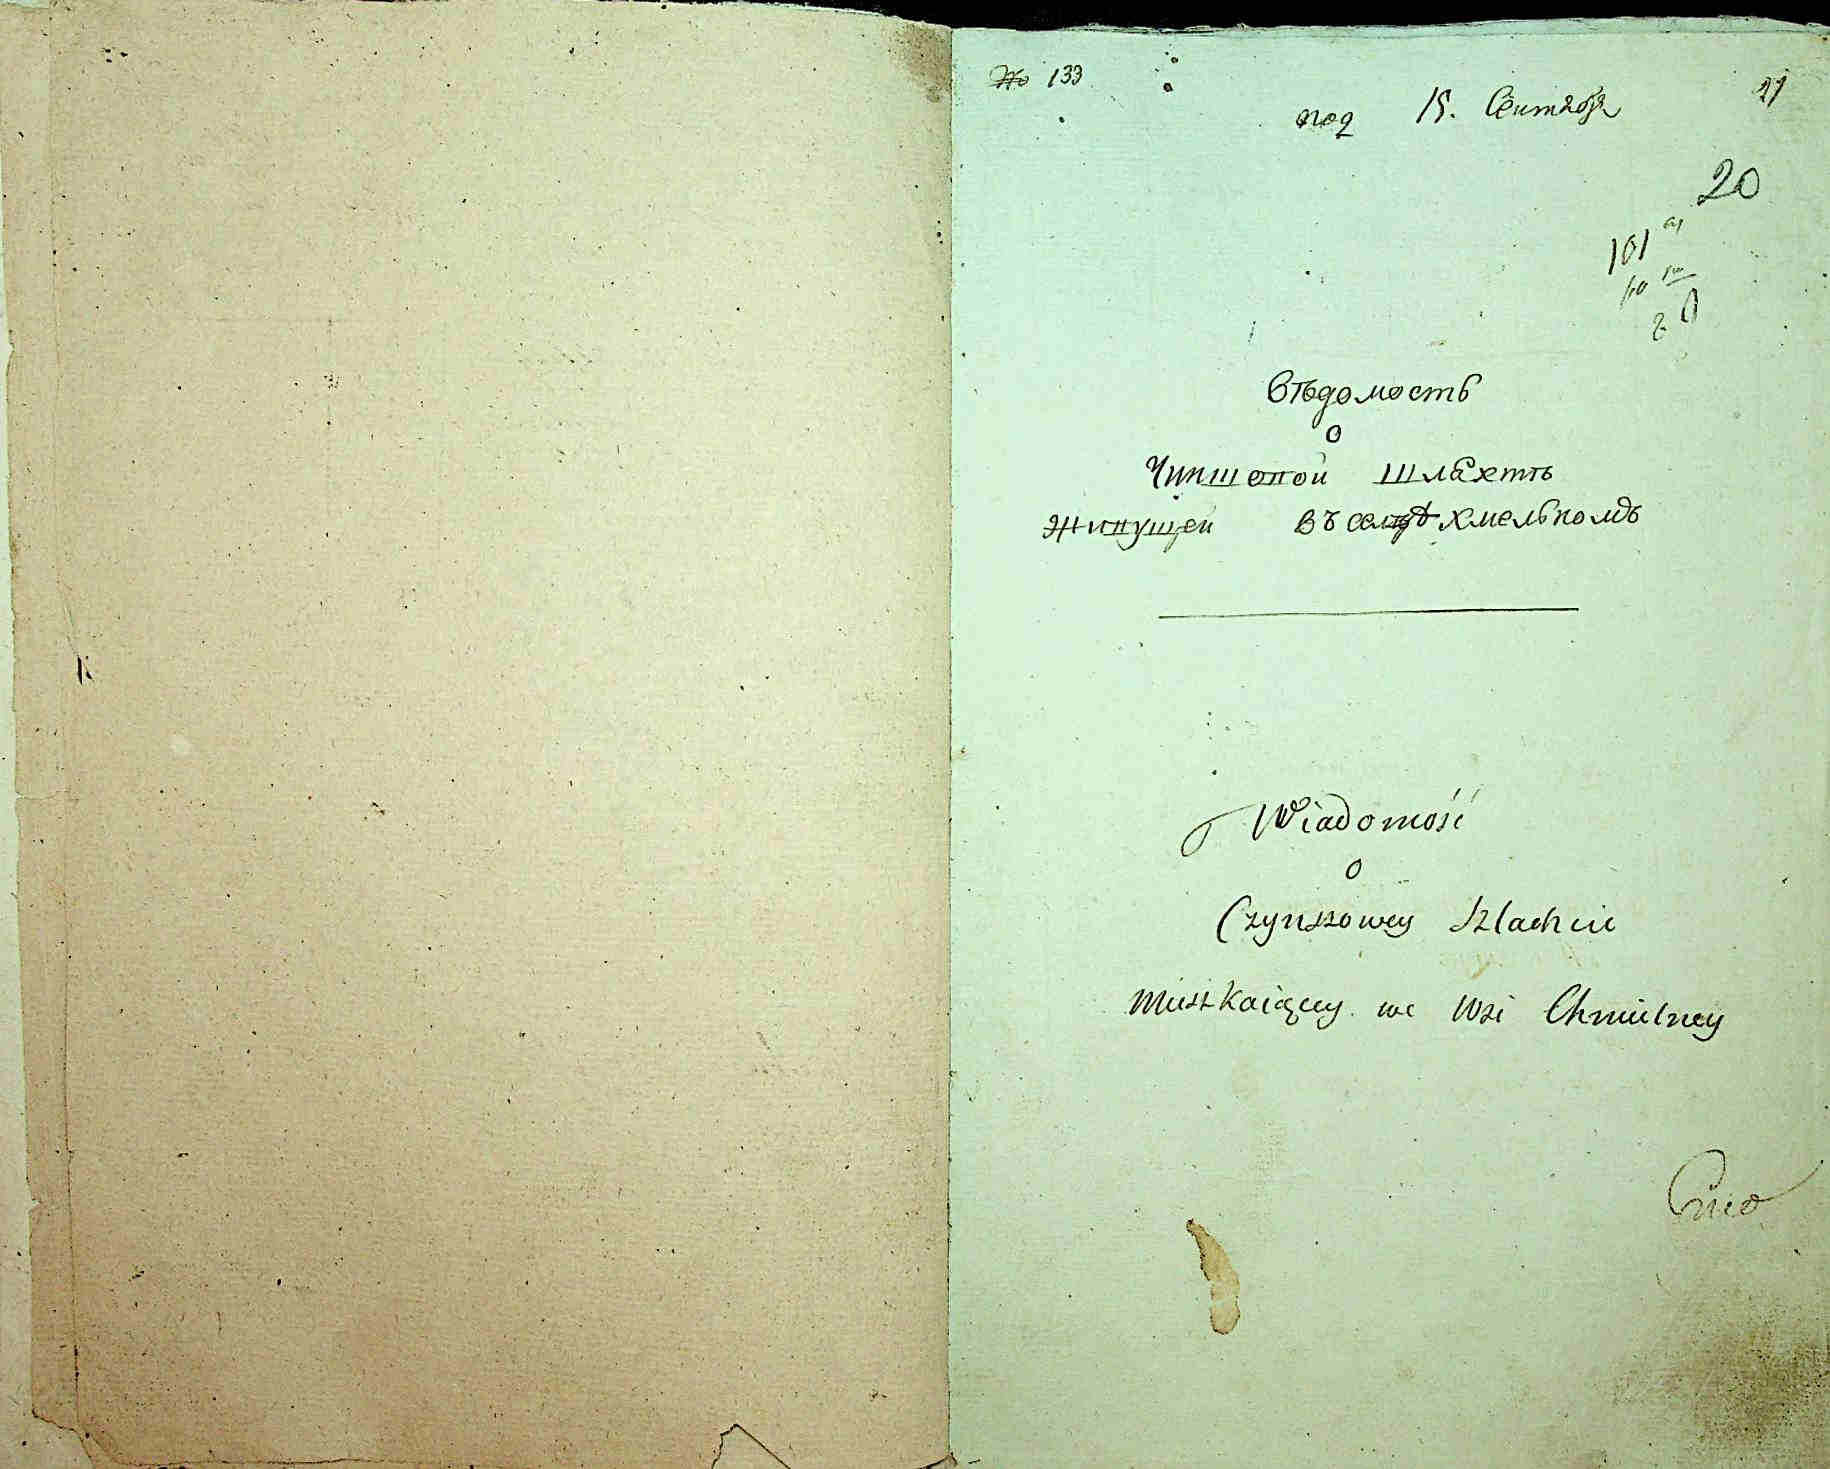 № 133
под 15. Сентября
21
20
101
Вѣдомость
о
Чиншовой шляхтѣ
живущей въ селѣ Хмельномъ
Wiadomość
o
Czynszowey Szlachcie
Mieszkaiącey we Wsi Chmielney